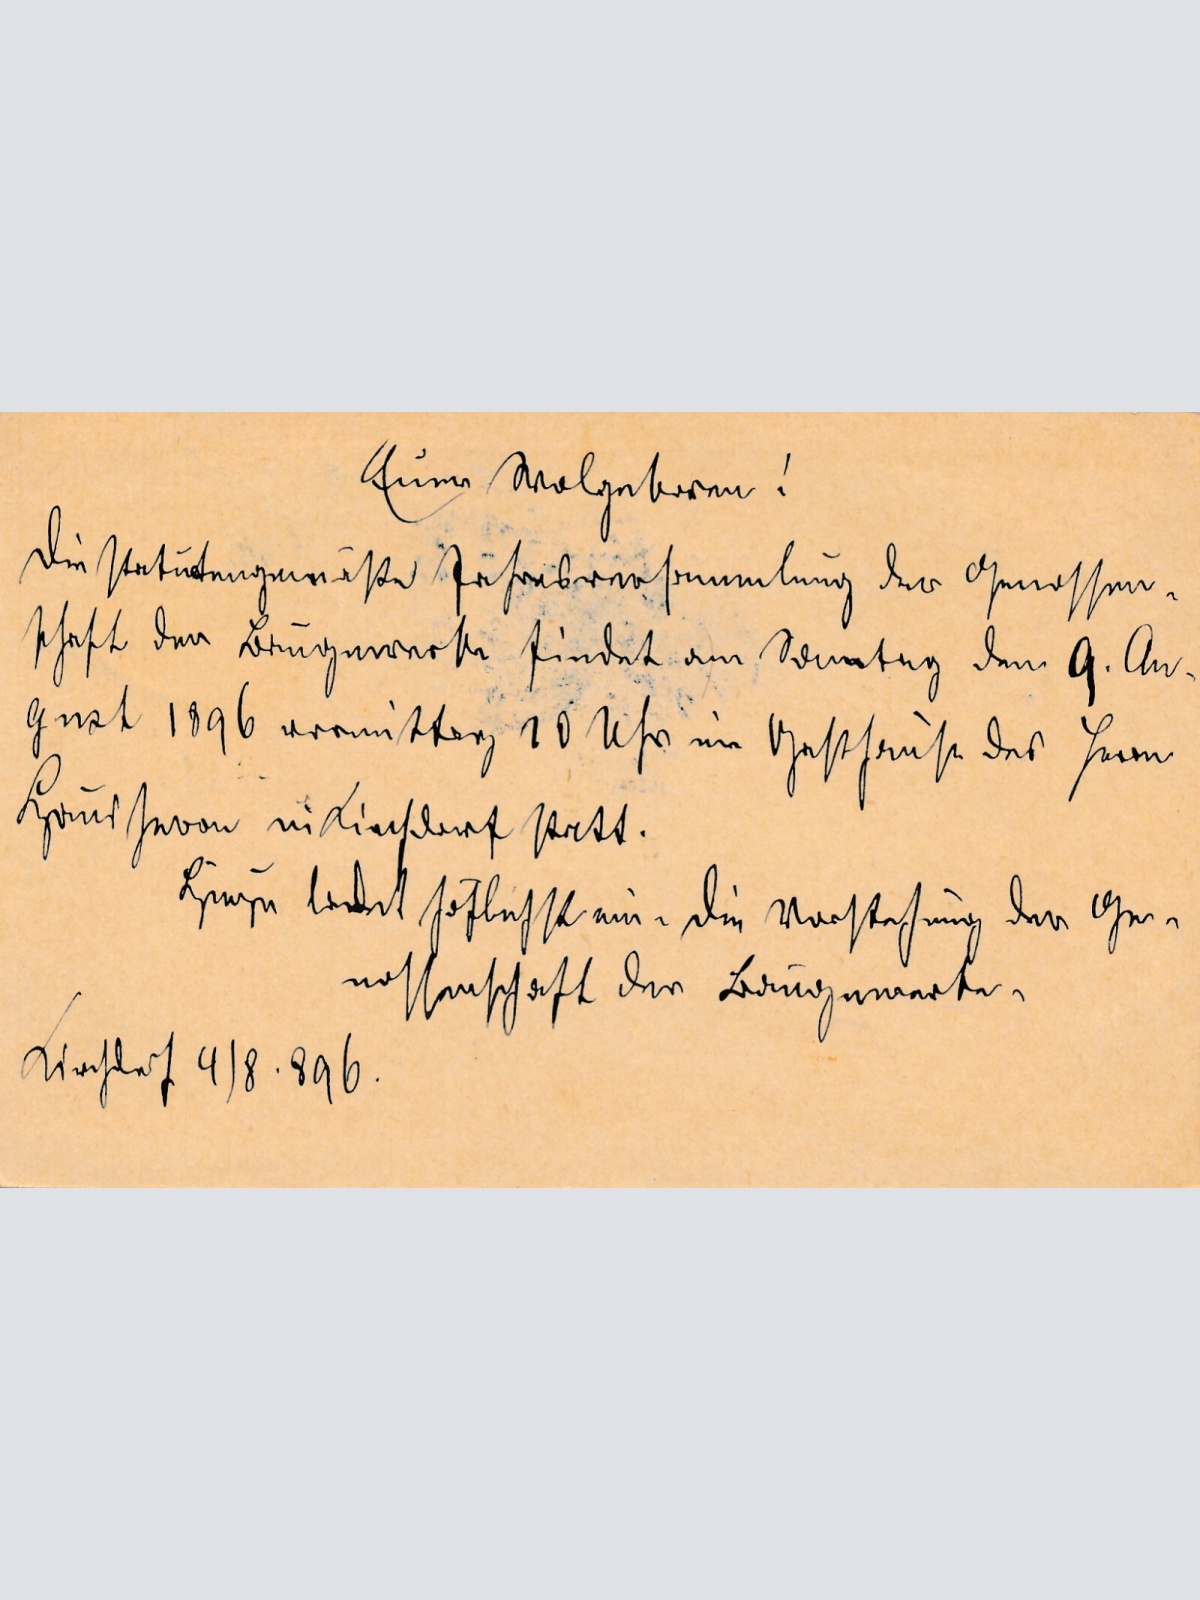 Euer Wolgeboren!
Die statutengemäße Jahresversammlung der Genossen-
schaft der Baugewerke findet am Sonntag den 9. Au-
gust 1896 vormittag 10 Uhr im Gasthause des Herrn
in Kirchdorf statt.
Hiezu ladet höflichst ein. Die Vorstehung der Ge-
nossenschaft der Baugewerke.
Kirchdorf 4/8.896.